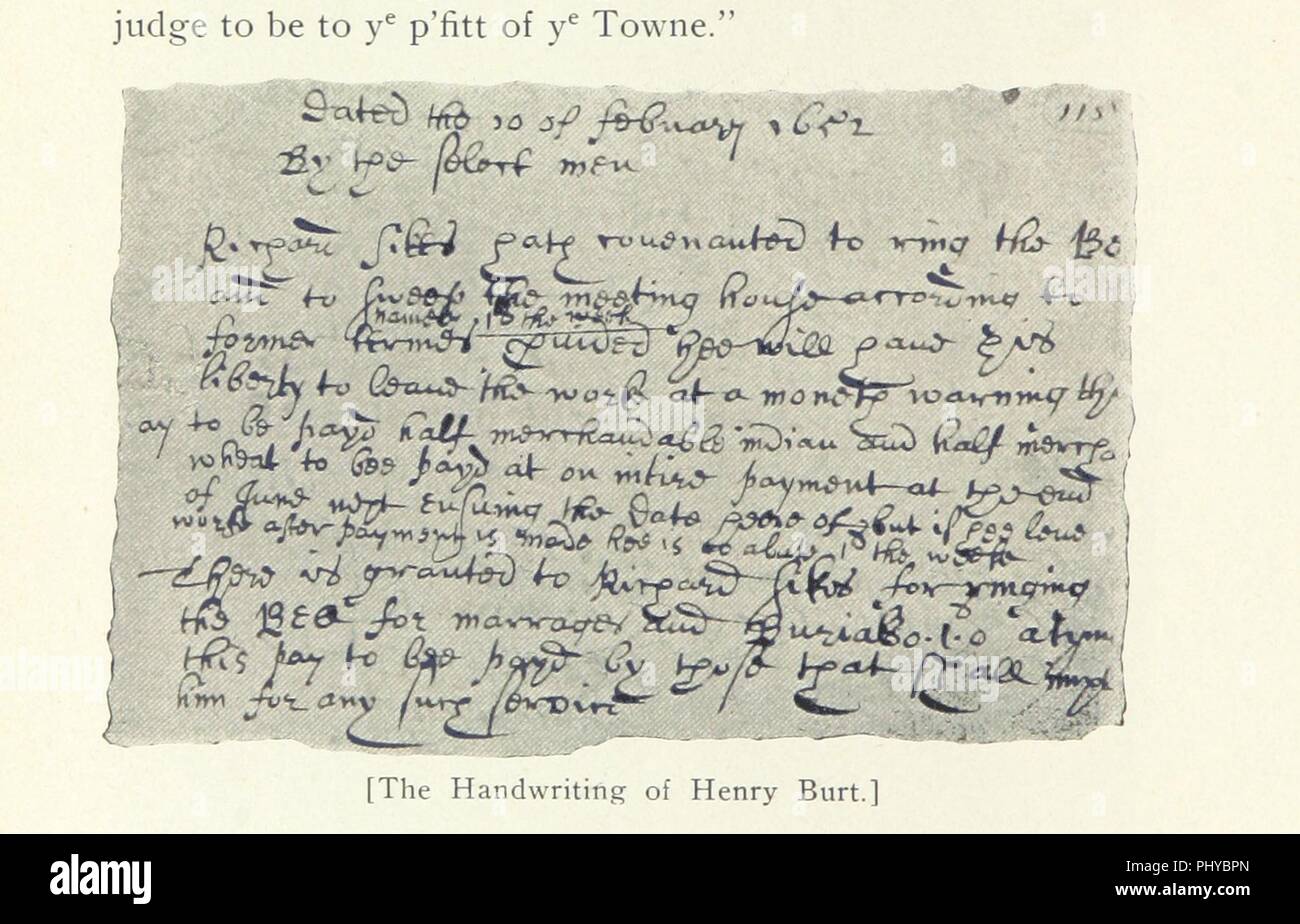 judge to be to yᵉ p'fitt of yᵉ Towne."
115
Dated the 10 of febuary 1652
By the select men
Richard Sikes hath couenanted to ring the Be
and to sweep the meeting house according to
namely 1s the week
former termes Prvided hee will haue his
liberty to leaue the work at a moneth warning th
ay to be payd half merchandable indian and half mercha
wheat to bee payd at on intire payment at the end
of June next ensuing the date heere of but if hee leue
worke after payment is made hee is to abate 1s the weeke
There is granted to Richard Sikes for ringing
the Bell for marrages and Burialls 0.1.0 a tyme
this pay to bee payd by those that shall imploy
him for any such service
[The Handwriting of Henry Burt.]
alamy
Image ID: PHYBPN
www.alamy.com